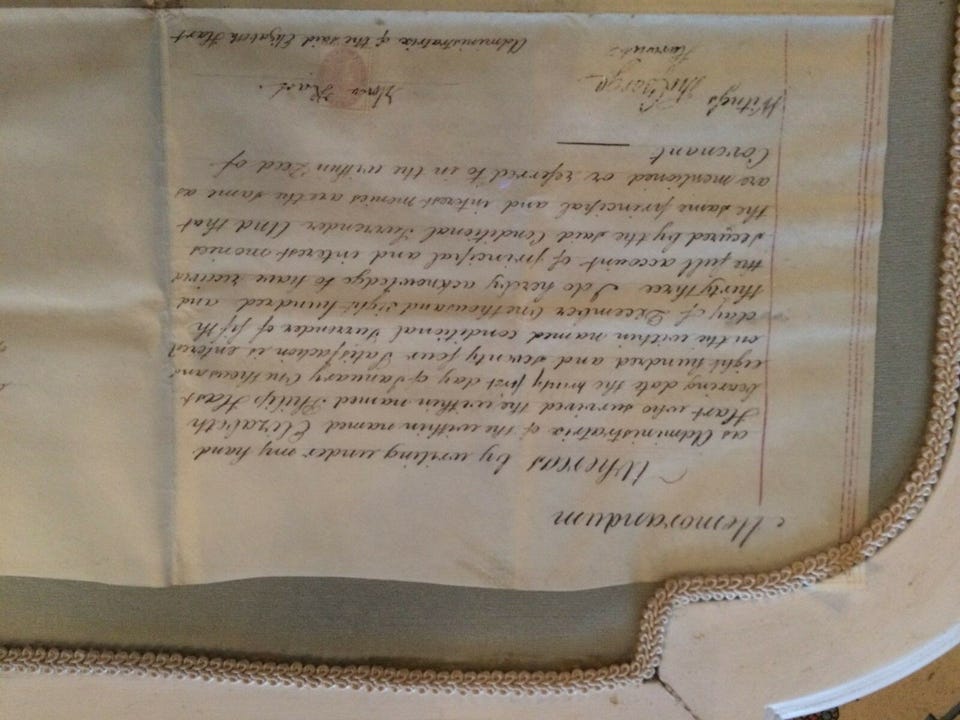 Memorandum
Whereas by writing under my hand
as Administratrix of the within named Elizabeth
Hart who survived the within named Philip Hart
bearing date the thirty first day of January One thousand
eight hundred and seventy four Satisfaction is entered
on the within named conditional Surrender of fifth
day of December One thousand eight hundred and
thirty three I do hereby acknowledge to have received
the full account of principal and interest monies
secured by the said Conditional Surrender And that
the same principal and interest monies are the same as
are mentioned or referred to in the within Deed of
Covenant
Witness
Hart
Administratrix of the said Elizabeth Hart